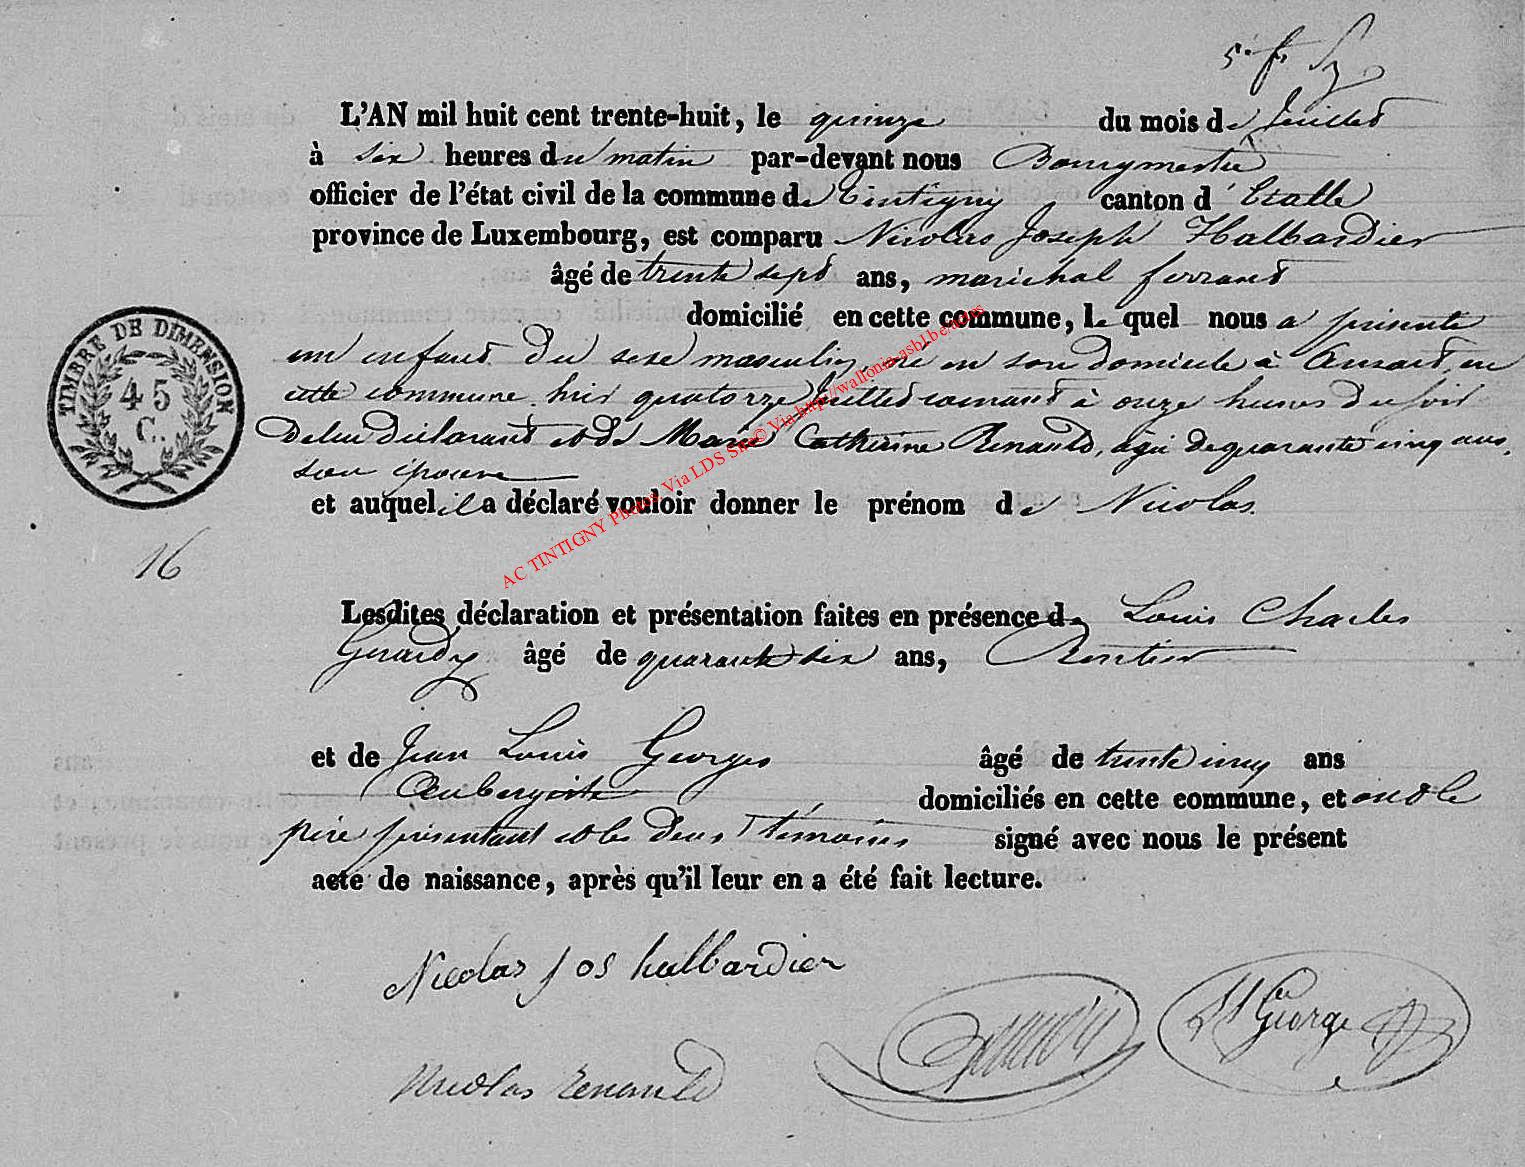 5. f.
L'AN mil huit cent trente-huit, le quinze du mois de Juillet
à six heures du matin par-devant nous Bourgmestre
officier de l'état civil de la commune de Tintigny canton d'Etalle
province de Luxembourg, est comparu Nicolas Joseph Halbardier
âgé de trente sept ans, maréchal ferrant
domicilié en cette commune, lequel nous a présenté
un enfant du sexe masculin, né en son domicile à Ansart, en
cette commune hier quatorze Juillet courant à onze heures du soir
De lui déclarant et de Marie Catherine Renauld, agée de quarante cinq ans,
son épouse
et auquel il a déclaré vouloir donner le prénom de Nicolas.
TIMBRE DE DIMENSION
45
C.
16
Lesdites déclaration et présentation faites en présence de Louis Charles
Gerardy âgé de quarante six ans, Rentier
et de Jean Louis Georges âgé de trente cinq ans
Aubergiste domiciliés en cette commune, et ont le
père présentant et les deux témoins signé avec nous le présent
acte de naissance, après qu'il leur en a été fait lecture.
Nicolas Jos halbardier
George
Nicolas Renauld
AC TINTIGNY Photos Via LDS Site© Via http://wallonia-asbl.be/actes